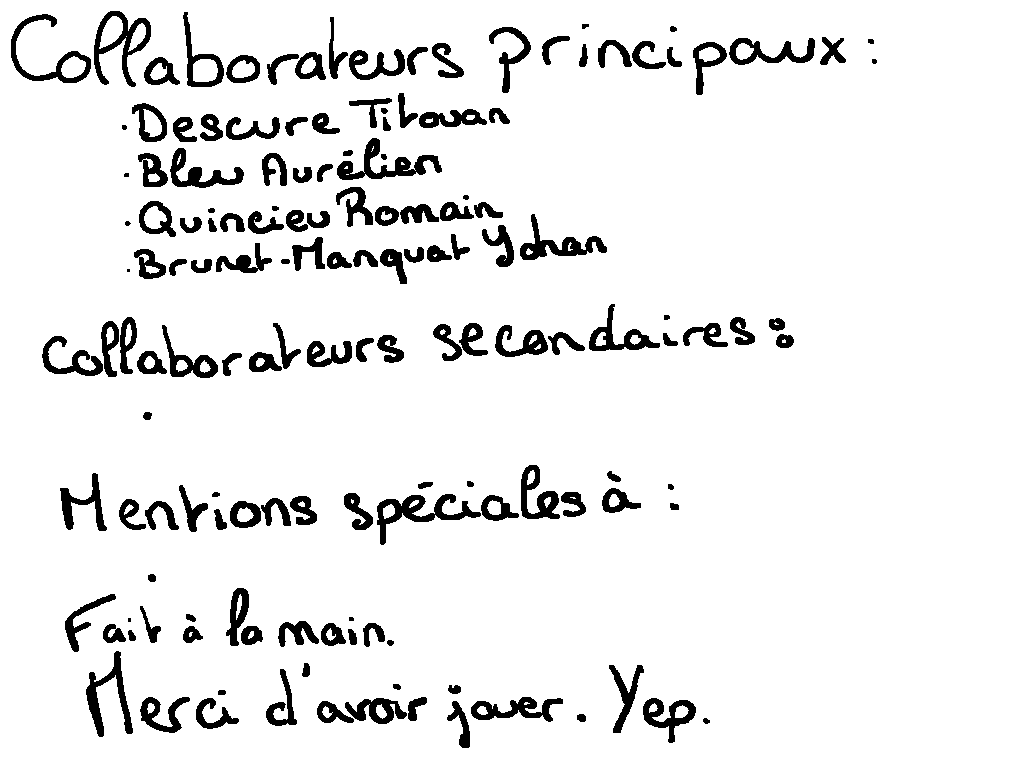 Collaborateurs principaux :
· Descure Titouan
· Bleu Aurélien
· Quincieu Romain
· Brunet-Manquat Yohan
Collaborateurs secondaires :
·
Mentions spéciales à :
·
Fait à la main.
Merci d'avoir jouer. Yep.